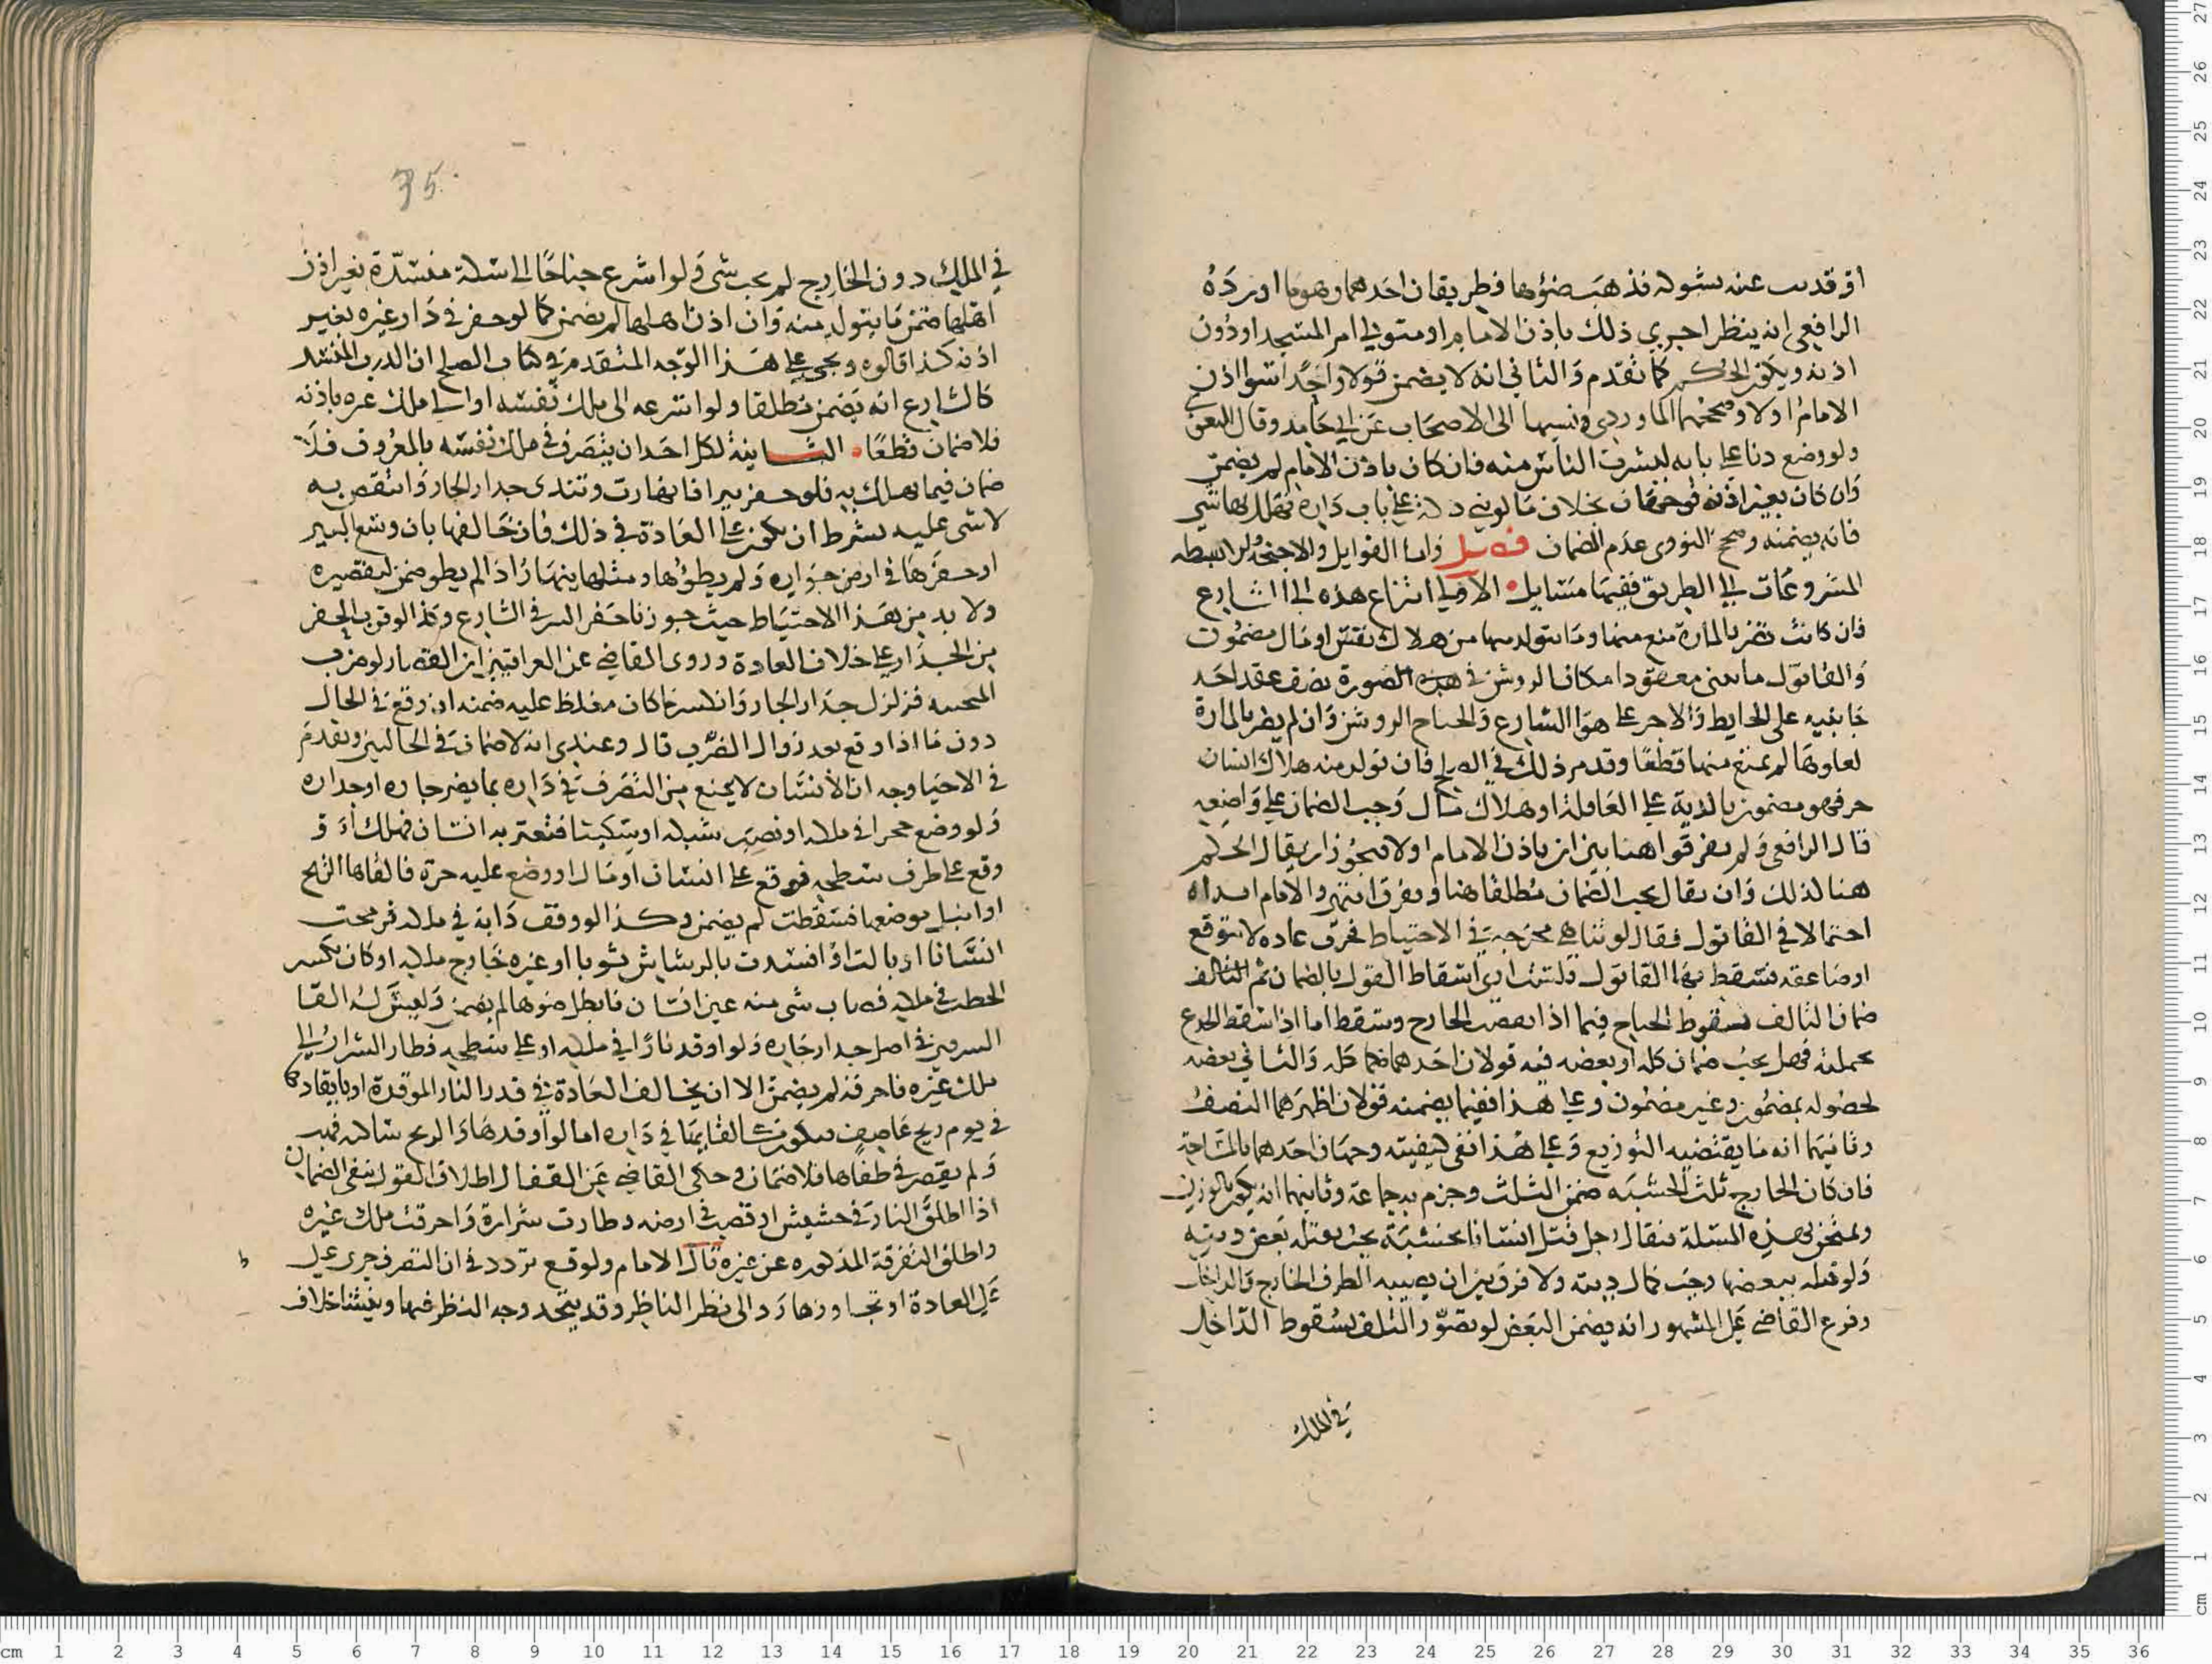 الرافعي انه ينظر اجري ذلك باذن الامام او متولي امر المسجد او دون
اذنه ويكون الحكم كما تقدم والثاني انه لا يضمن قولا واحدا سوا اذن
الامام اولا وصححهما الماوردي ونسبها الى الاصحاب عن ابي حامد وقال
ولو وضع دنا على بابه ليشرب الناس منه فان كان باذن الامام لم يضمن
وان كان بغير اذنه فوجهان بخلاف ما لو بنى دكة على باب داره فهلك بها شي
فانه يضمنه وصحح النووي عدم الضمان فصل واما القوابيل والاجنحة
المشروعات الى الطريق ففيها مسايل الاولى اشراع هذه الى الشارع
فان كانت تضر بالمارة منع منها وما يتولد منها من هلاك نفس او مال مضمون
والقابول ما يبنى معقودا مكان الروشن في هذه الصورة نصف عقد احد
جانبيه على الحايط والاخر على هوا الشارع والجناح الروشن وان لم يضر بالمارة
لعلوها لم يمنع منها قطعا وقد مر ذلك في الصلح فان تولد منه هلاك انسان
حر فهو مضمون بالدية على العاقلة او هلاك مال وجب الضمان على واضعه
قال الرافعي ولم يفرقوا هنا بين ان ياذن الامام اولا فيجوز ان يقال الحكم
هنا كذلك وان يقال يجب الضمان مطلقا هنا ويفرق انتهى والامام ابداه
احتمالا في القابول فقال لو تناهى مخرجه في الاحتياط فجرت عادة لا تتوقع
او صاعقة فسقط بها القابول فلست ارى اسقاط القول بالضمان ثم
ضمان التالف بسقوط الجناح فيما اذا انقصف الخارج وسقط اما اذا سقط الجذع
بجملته فهل يجب ضمان كله او بعضه فيه قولان احدهما ضمان كله والثاني بعضه
لحصوله بمضمون وغير مضمون وعلى هذا ففيما يضمنه قولان اظهرهما النصف
وثانيهما انه ما يقتضيه التوزيع وعلى هذا ففي كيفيته وجهان احدهما بالمساحة
فان كان الخارج ثلث الخشبة ضمن الثلث وجزم به جماعة وثانيهما انه يكون بالوزن
ويمتحن بهذه المسلة فيقال رجل قتل انسانا بخشبة يجب بقتله بعض ديته
ولو قتله ببعضها وجب كمال ديته ولا فرق بين ان يصيبه الطرف الخارج والداخل
وفرع القاضي على المشهور انه يضمن البعض لو تصور التلف بسقوط الداخل
في الملك
35
في الملك دون الخارج لم يجب شي ولو اشرع جناحا الى سكة منسدة بغير اذن
اهلها ضمن ما يتولد منه وان اذن اهلها لم يضمن كما لو حفر في دار غيره بغير
اذنه كذا قالوه ويجي على هذا الوجه المتقدم في كتاب الصلح ان الدرب المنسد
كالشارع انه يضمن مطلقا ولو اشرعه الى ملك نفسه او الى ملك غيره باذنه
فلا ضمان قطعا الثانية لكل احد ان يتصرف في ملك نفسه بالمعروف فلا
ضمان فيما يهلك به فلو حفر بيرا فانهارت وتندى جدار الجار وانتقص به
لا شي عليه بشرط ان يكون على العادة في ذلك فان خالفها بان وسع البير
او حفرها في ارض خوارة ولم يطوها ومثلها ينهار اذا لم يطو ضمن لتقصيره
ولا بد من هذا الاحتياط حيث جوزنا حفر البير في الشارع وكذا لو قرب الحفر
من الجدار على خلاف العادة وروى القاضي عن العراقيين ان القصار لو ضرب
فزلزل جدار الجار وانكسر ما كان مغلظ عليه ضمنه ان وقع في الحال
دون ما اذا وقع بعد زوال الضرب قال وعندي انه لا ضمان في الحالين وتقدم
في الاحيا وجه ان الانسان لا يمنع من التصرف في داره بما يضر جاره او جداره
ولو وضع حجرا في ملكه او نصب شبكة او سكينا فتعثر به انسان فهلك او
وقع على طرف سطحه فوقع على انسان او مال او وضع عليه جرة فالقاها الريح
او ابتل موضعها فسقطت لم يضمن وكذا لو وقف دابة في ملكه فرمحت
انسانا او بالت او افسدت بالرشاش ثوبا او غيره خارج ملكه او كان يكسر
الحطب في ملكه فاصاب شي منه عين انسان فابطل ضوها لم يضمن وليس له القا
السرجين في اصل جدار جاره ولو اوقد نارا في ملكه او على سطحه فطار الشرار الى
ملك غيره فاحرقه لم يضمن الا ان يخالف العادة في قدر النار الموقدة او بايقادها
في يوم ريح عاصف فيكون كالقايها في داره اما لو اوقدها والريح ساكنه فهبت
ولم يقصر في طفاها فلا ضمان وحكى القاضي عن القفال اطلاق القول بنفي الضمان
اذا اطلق النار في حشيش او قصب في ارضه وطارت شرارة واحرقت ملك غيره
واطلق التفرقة المذكوره عن غيره قال الامام ولو وقع تردد في ان التصرف جرى على
العادة او تجاوزها رد الى نظر الناظر وقد يتحد وجه النظر فيها وينشا خلاف